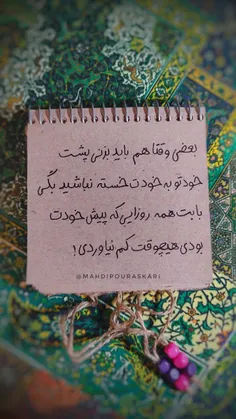 بعضی وقتا هم باید بزنی پشت
خودتو به خودت خسته نباشید بگی
بابت همه روزایی که پیش خودت
بودی هیچوقت کم نیاوردی!
@MAHDIPOURASKARI